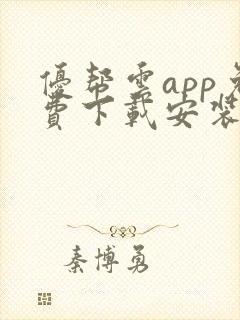 優幫雲app免
費下載安裝
秦博勇